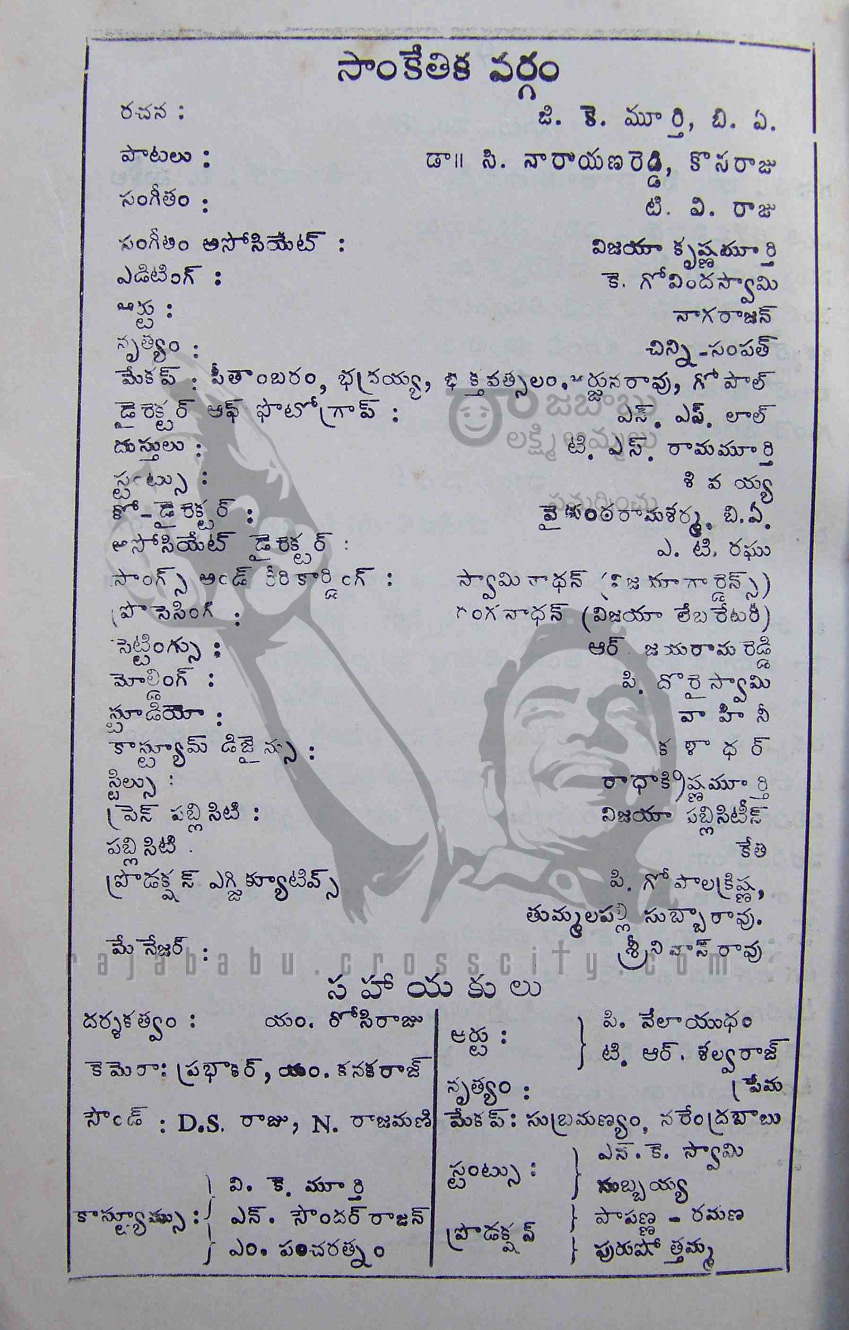 సాంకేతిక వర్గం
రచన : జి. కె. మూర్తి, బి. ఏ.
పాటలు : డా॥ సి. నారాయణరెడ్డి, కొసరాజు
సంగీతం : టి. వి. రాజు
సంగీతం అసోసియేట్ : విజయా కృష్ణమూర్తి
ఎడిటింగ్ : కె. గోవిందస్వామి
ఆర్టు : నాగరాజన్
నృత్యం : చిన్ని-సంపత్
మేకప్ : పీతాంబరం, భద్రయ్య, భక్తవత్సలం, అర్జునరావు, గోపాల్
డైరెక్టర్ ఆఫ్ ఫొటోగ్రాఫ్ : ఎస్. ఎస్. లాల్
దుస్తులు : టి. ఎస్. రామమూర్తి
స్టంట్సు : శివయ్య
కో-డైరెక్టర్ : వైకుంఠరామశర్మ, బి.ఏ.
అసోసియేట్ డైరెక్టర్ : ఎ. టి. రఘు
సాంగ్స్ అండ్ రీరికార్డింగ్ : స్వామినాథన్ (విజయాగార్డెన్స్)
ప్రాసెసింగ్ : రంగనాథన్ (విజయా లేబరేటరీ)
సెట్టింగ్సు : ఆర్. జయరామరెడ్డి
మోల్డింగ్ : పి. దొరైస్వామి
స్టూడియో : వాహినీ
కాస్ట్యూమ్ డిజైన్సు : కళాధర్
స్టిల్సు : రాధాక్రిష్ణమూర్తి
ప్రెస్ పబ్లిసిటి : విజయా పబ్లిసిటీస్
పబ్లిసిటి : కేతా
ప్రొడక్షన్ ఎగ్జిక్యూటివ్స్ పి. గోపాలక్రిష్ణ,
తుమ్మలపల్లి సుబ్బారావు.
మేనేజర్ : శ్రీనివాసరావు
rajababu.crosscity.com
సహాయకులు
దర్శకత్వం : యం. రోసిరాజు
కెమెరా: ప్రభాకర్, యం. కనకరాజ్
సౌండ్ : D.S. రాజు, N. రాజమణి
కాస్ట్యూమ్సు : వి. కె. మూర్తి
ఎన్. సౌందర్‌రాజన్
ఎం. పంచరత్నం
ఆర్టు : పి. వేలాయుధం
టి. ఆర్. శల్వరాజ్
నృత్యం : ప్రేమ
మేకప్: సుబ్రమణ్యం, నరేంద్రబాబు
స్టంట్సు : ఎన్. కె. స్వామి
సుబ్బయ్య
ప్రొడక్షన్ పాపణ్ణ - రమణ
పురుషోత్తమ్మ
రాజబాబు
లక్ష్మి అమ్మలు
సమర్పించు